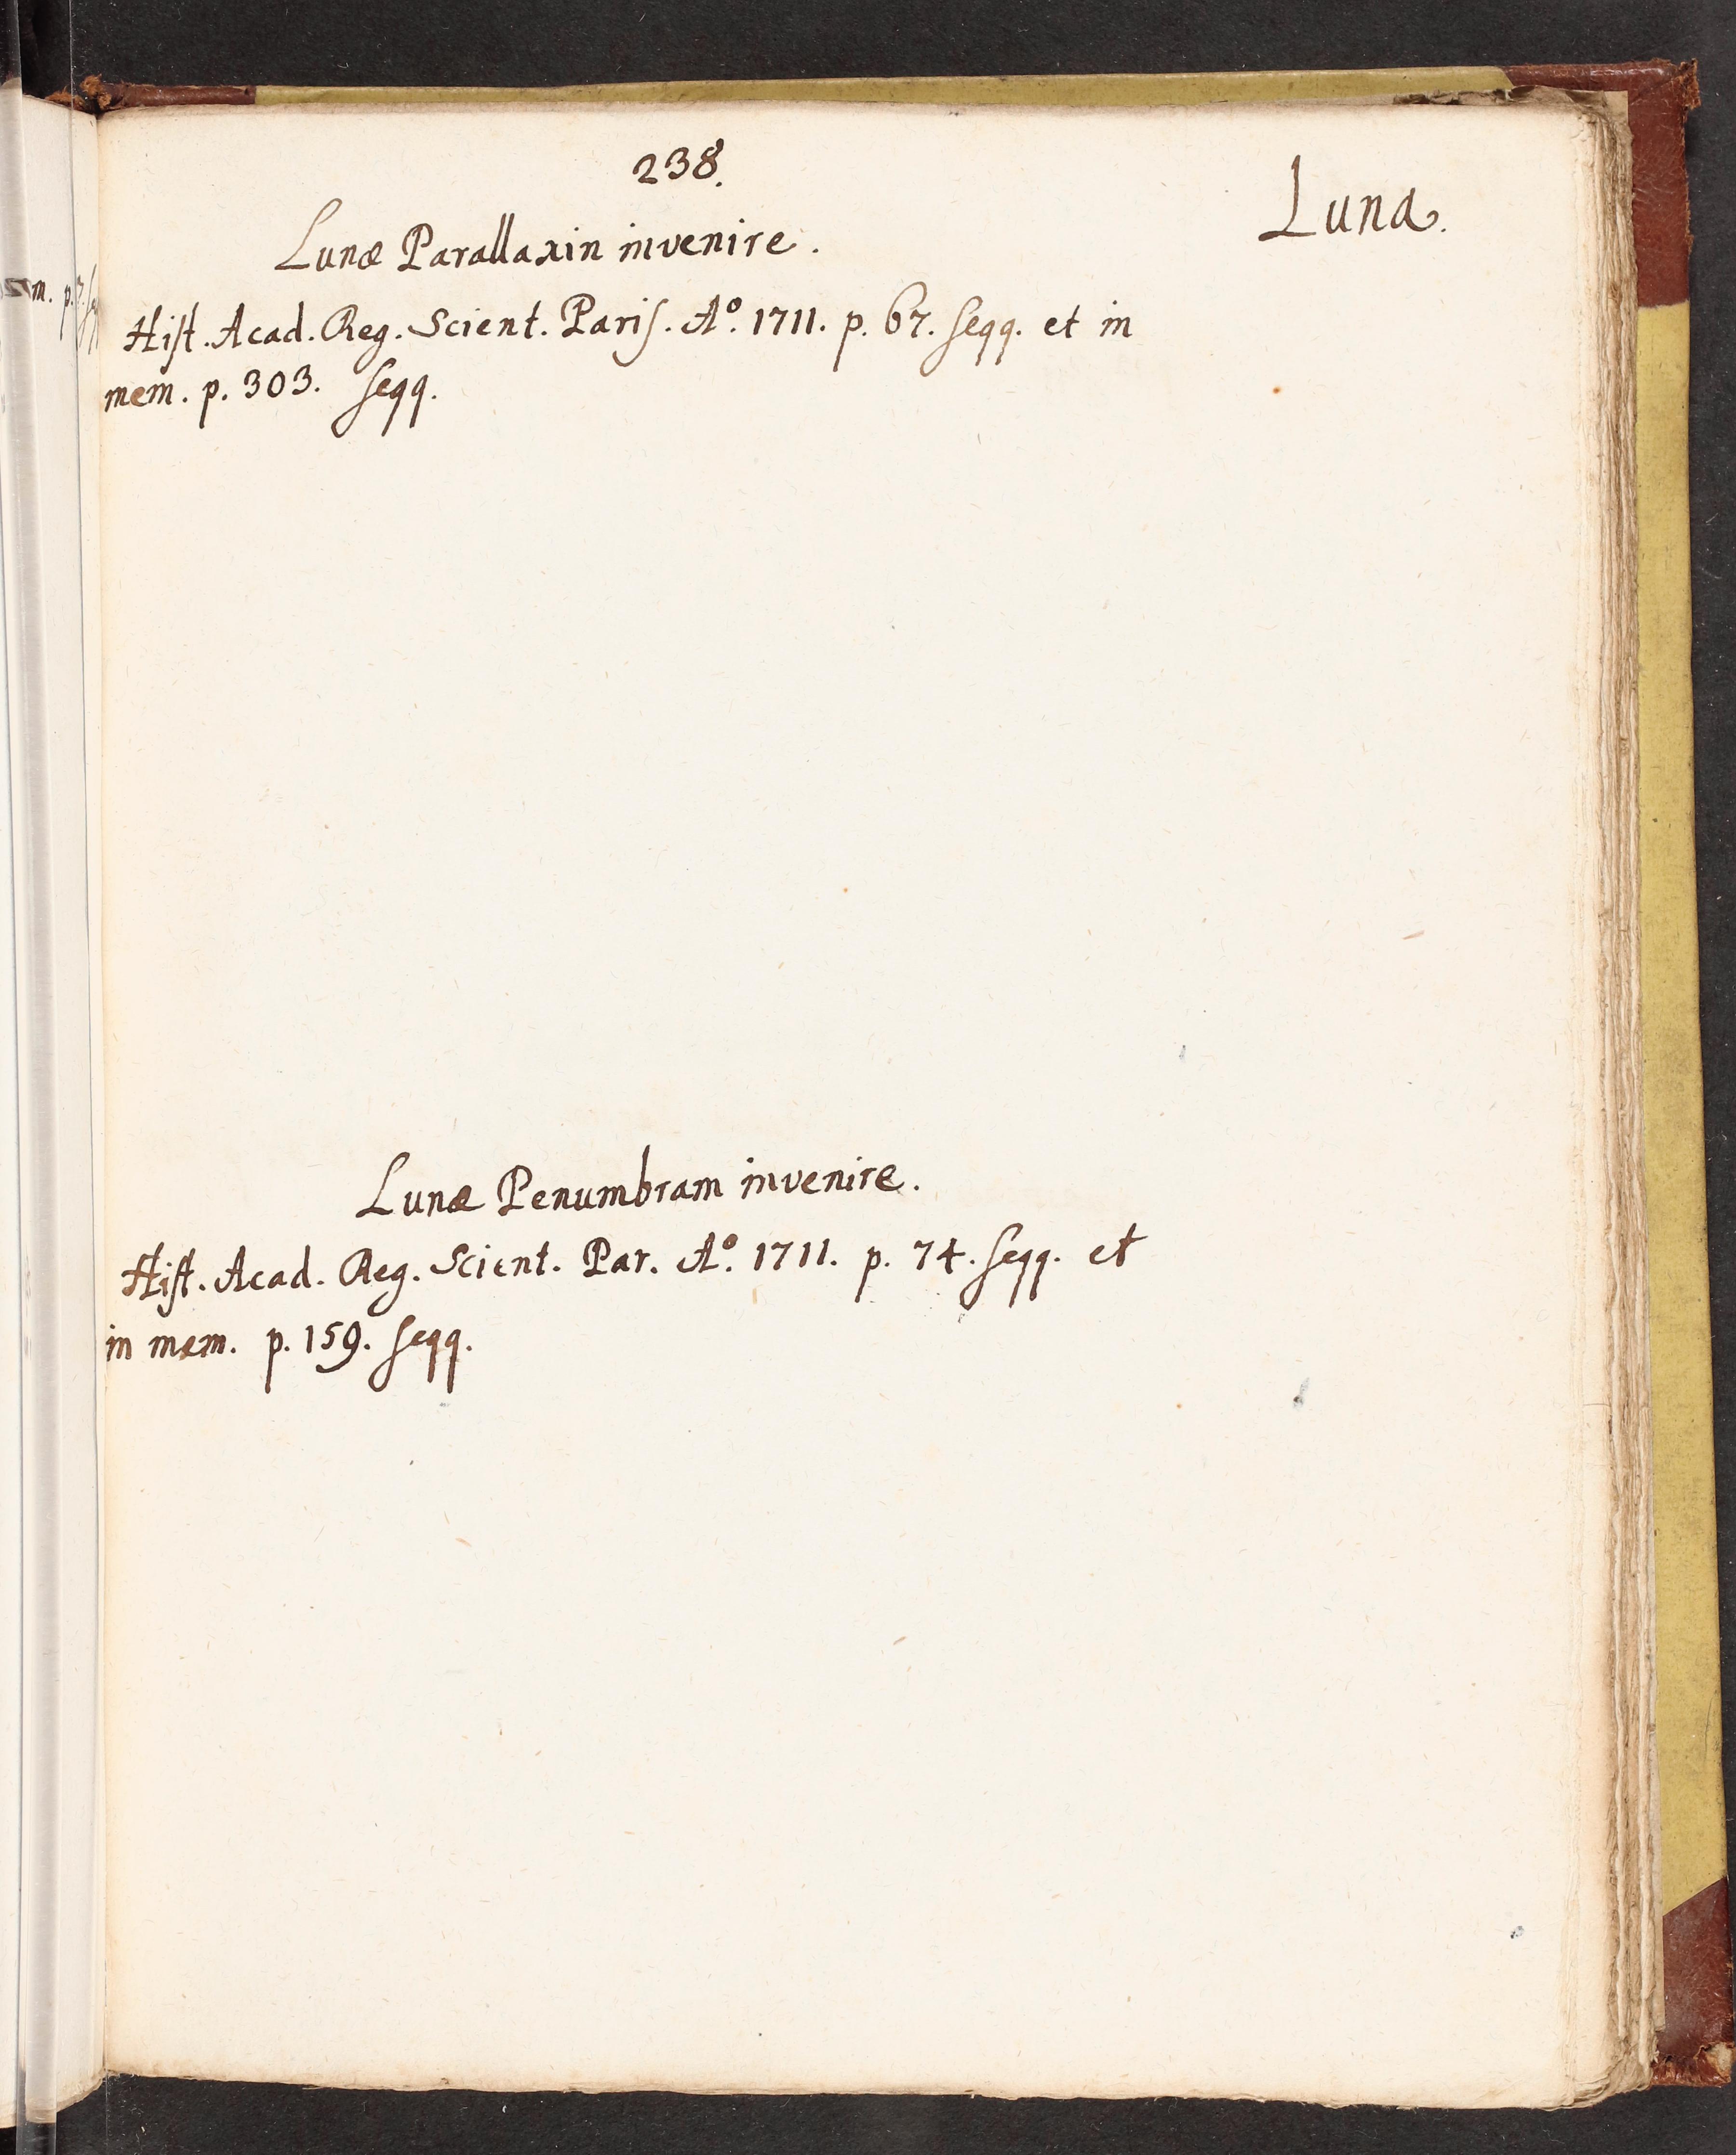 238.
Luna.
Lunæ Parallaxin invenire.
Hiſt. Acad. Reg. Scient. Pariſ. Aº. 1711. p. 67. ſeqq. et in
mem. p. 303. ſeqq.
Lunæ Penumbram invenire.
Hiſt. Acad. Reg. Scient. Par. Aº. 1711. p. 74. ſeqq. et
in mem. p. 159. ſeqq.